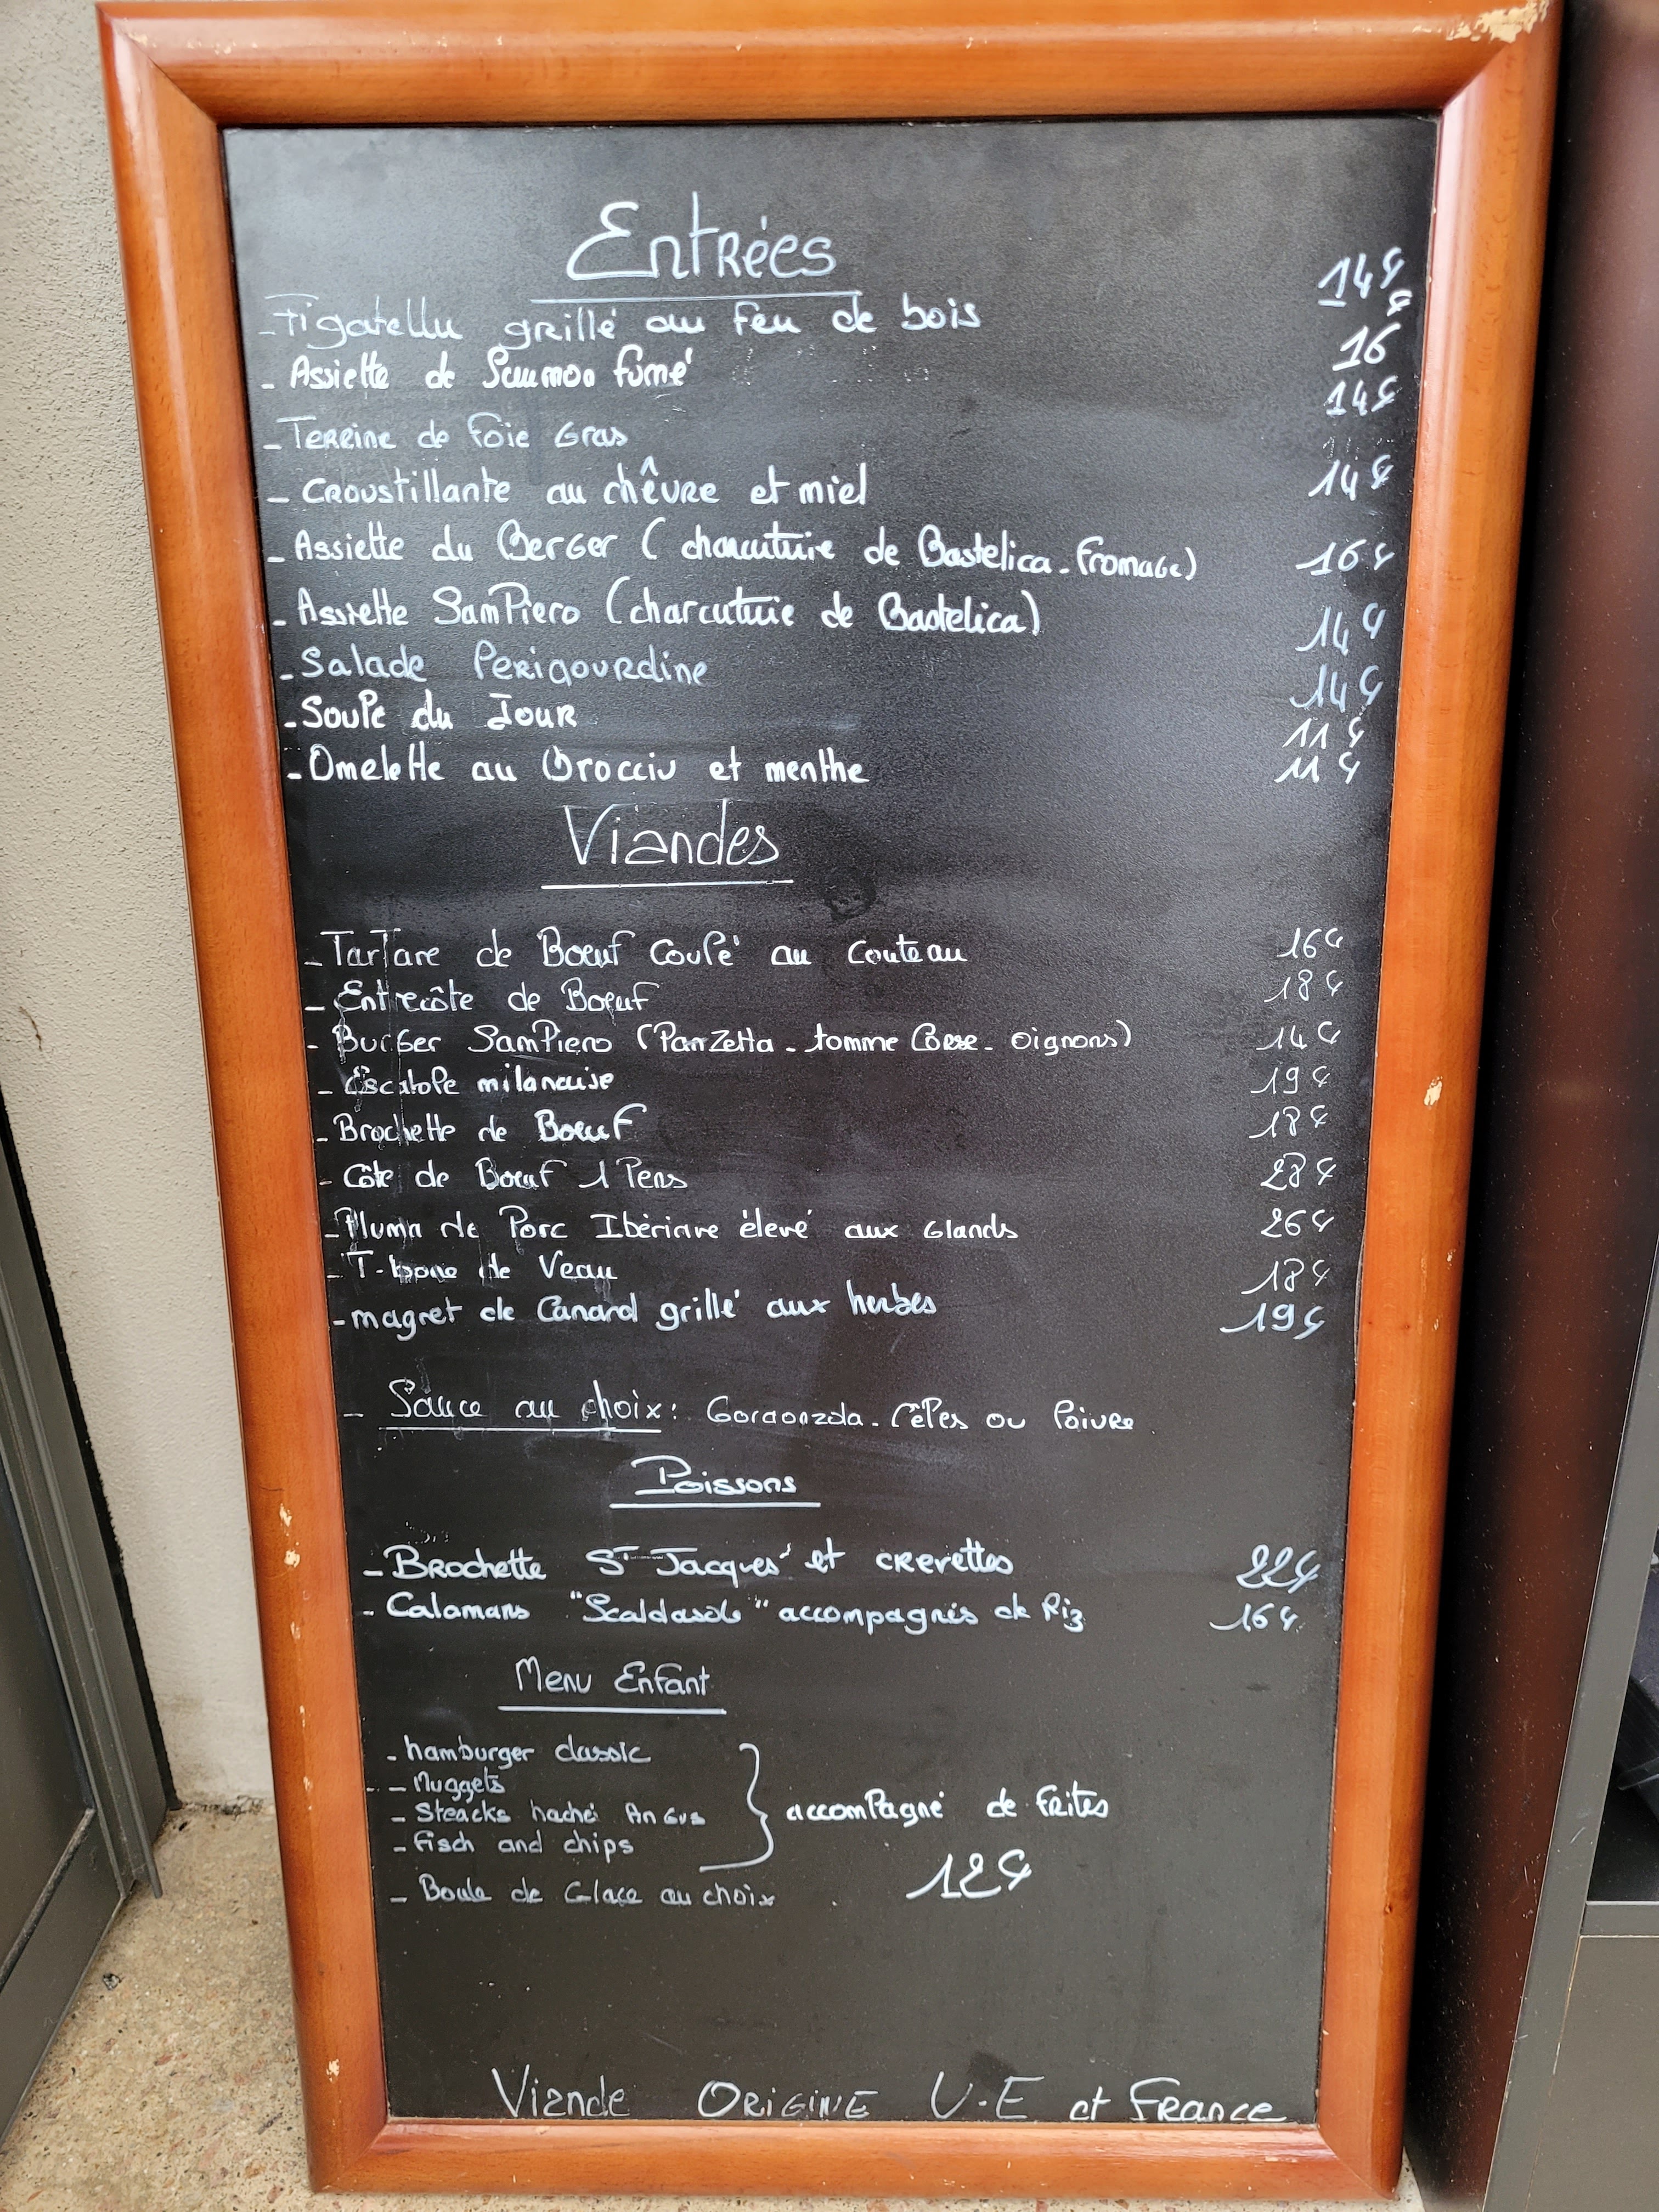 Entrées
- Figatellu grillé au feu de bois 14€
- Assiette de Saumon fumé 16€
- Terrine de foie Gras 14€
- Croustillante au chêvre et miel 14€
- Assiette du Berger (charcuterie de Bastelica - fromage) 16€
- Assiette SamPiero (charcuterie de Bastelica) 14€
- Salade Perigourdine 14€
- Soupe du Jour 11€
- Omelette au Brocciu et menthe 11€
Viandes
- Tartare de Bœuf Coupé au Couteau 16€
- Entrecôte de Bœuf 18€
- Burger SamPiero (PanZetta - tomme Corse - oignons) 14€
- Escalope milanaise 19€
- Brochette de Bœuf 18€
- Côte de Bœuf 1 Pers 28€
- Pluma de Porc Ibérique élevé aux Glands 26€
- T-bone de Veau 18€
- magret de Canard grillé aux herbes 19€
- Sauce au choix : Gorgonzola - Cêpes ou Poivre
Poissons
- Brochette St Jacques et crevettes 22€
- Calamars "Scaldasole" accompagnés de Riz 16€
Menu Enfant
- hamburger classic
- Nuggets
- Steacks haché Angus
accompagné de frites
- fisch and chips
12€
- Boule de Glace au choix
Viande Origine U.E et France